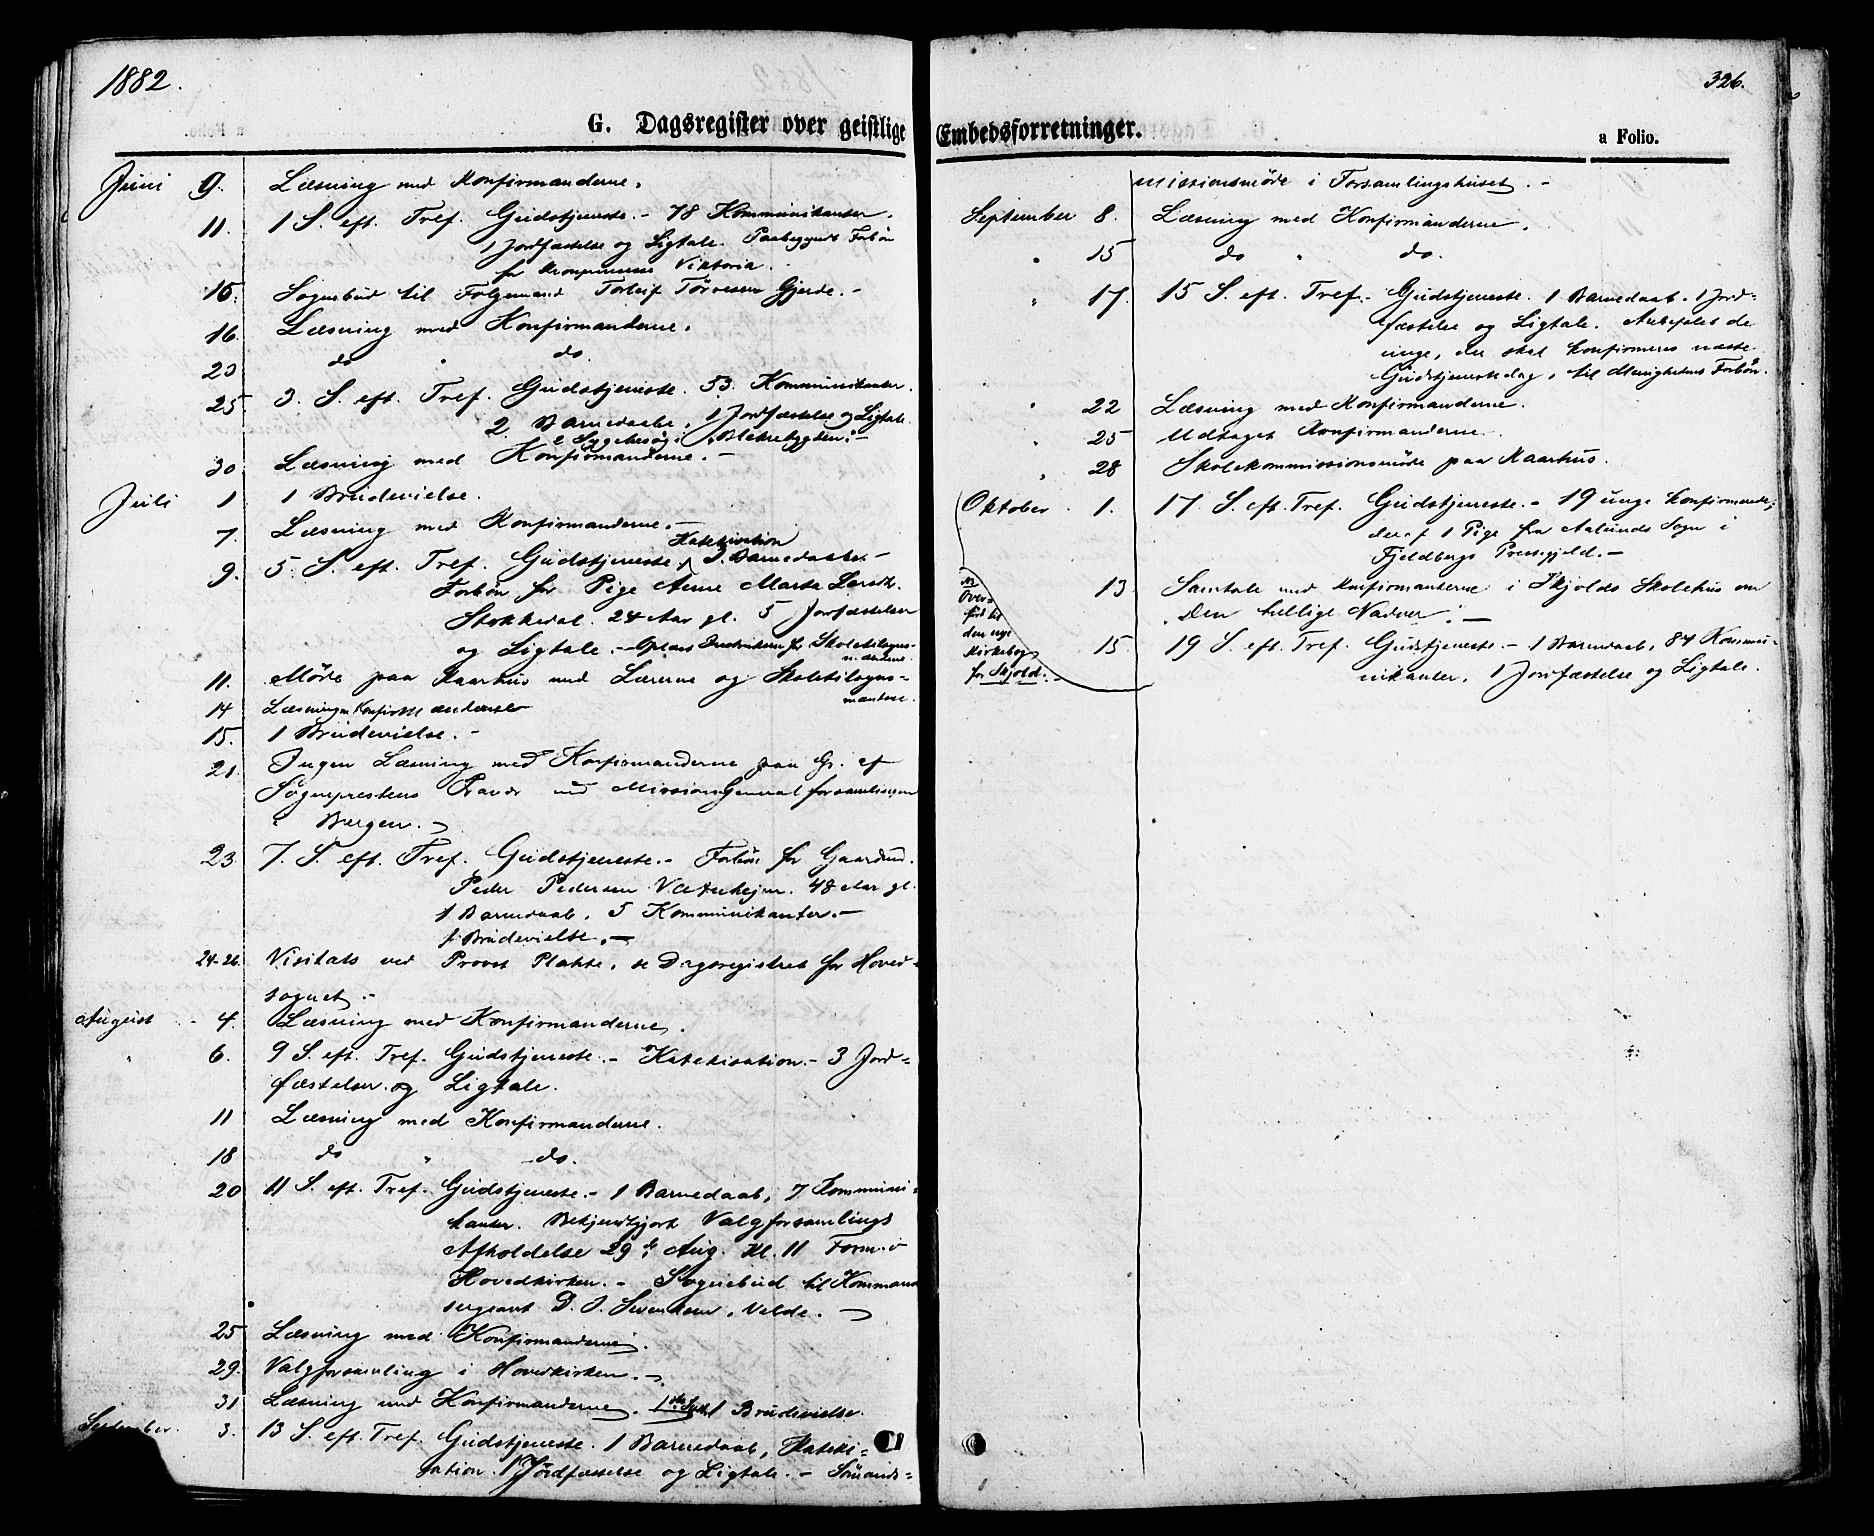 1882.
G. Dagsregister over geistlige
Juni 9. Læsning med Konfirmanderne.
11. 1 S. eft. Tref. Gudstjeneste. - 78 Kommunikanter.
1 Jordfæstelse og Ligtale. Paabegyndt Forbön
for Kronprincesse Viktoria.
15. Sognebud til Folgemand Torleif Törresen Gjerde. -
16. Læsning med Konfirmanderne.
23 do " do.
25. 3. S. eft. Tref. Gudstjeneste. 53. Kommunikanter.
2 Barnedaabe. 1 Jordfæstelse og Ligtale.
2 Sygebesög i
30. Læsning med Konfirmanderne. -
Juli 1. 1 Brudevielse.
7. Læsning med Konfirmanderne. -
Katekisation
9. 5. S. eft. Tref. Gudstjeneste. 3. Barnedaabe. -
Forbön for Pige Anne Marta Larsdtr.
Stokkedal. 24 Aar gl. 5 Jordfæstelser
og Ligtale. - Oplæst for Skoletilsyns-
mændene.
11. Möde paa Aarhus med Lærerne og Skoletilsyns-
mændene.
14 Læsning m Konfirmanderne
15. 1 Brudevielse. -
21. Ingen Læsning med Konfirmanderne paa Gr. af
Sögneprestens Fravær ved MissionsGeneralforsamlingen
i Bergen. -
23. 7. S. eft. Tref. Gudstjeneste. - Forbön for Gaardmd.
Peder Pedersen Vatnehejm. 48 Aar gl.
1 Barnedaab. 5 Kommunikanter. -
1 Brudevielse. -
24-26. Visitats ved Provst Plahte, se Dagsregistret for Hoved-
sognet. -
August - 4. Læsning med Konfirmanderne.
" 6. 9 S. eft. Tref. Gudstjeneste. - Katekisation. - 3 Jord=
fæstelser og Ligtale.
11 Læsning med Konfirmanderne.
18 do " do.
20 11 S. eft. Tref. Gudstjeneste. - 1 Barnedaab, 7 Kommuni-
kanter. Bekjendtgjort Valgforsamlings
Afholdelse 29de Aug. Kl. 11 Form. i
Hovedkirken. - Sognebud til Kommand
sergeant D. J. Svendsen, Velde. -
25 Læsning med Konfirmanderne.
29. Valgforsamling i Hovedkirken. -
31 Læsning med Konfirmanderne. 1ste Sept. 1 Brudevielse.
September. 3. 13 S. eft. Tref. Gudstjeneste. 1 Barnedaab, Kateki=
sation. 1 Jordfæstelse og Ligtale. - Sömands=
326.
Embedsforretninger.
a Folio.
missionsmöde i Forsamlingshuset. -
September 8. Læsning med Konfirmanderne.
" 15 do " do.
" 17. 15 S. eft. Tref. - Gudstjeneste. 1 Barnedaab. 1 Jord=
fæstelse og Ligtale. Anbefales de
unge, der skal konfirmeres næste
Gudstjenestedag, til Menighedens Forbön.
" 22 Læsning med Konfirmanderne.
" 25 Udtaget Konfirmanderne.
" 28 Skolekommissionsmöde paa Aarhus.
Oktober . 1. 17. S. eft. Tref. Gudstjeneste. - 19 unge konfirmerede,
deraf 1 Pige fra Aalunds Sogn i
Fjeldbergs Prestegjeld. -
13. Samtale med Konfirmanterne i Skjolds Skolehus om
"Den hellige Nadver". -
15. 19 S. eft. Tref. Gudstjeneste. - 1 Barnedaab, 84 Kommu=
nikanter. 1 Jordfæstelse og Ligtale.
Over=
fört til
den nye
Kirkebog
for Skjold. -